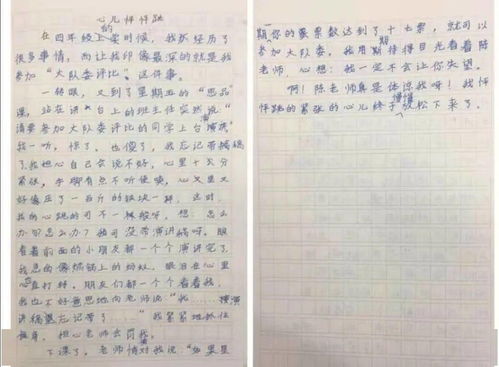 心儿怦怦跳
在四年级上的时候，我所经历了
很多事情，而让我印像最深的就是我
参加“大队委评比”这件事。
一转眼，又到了星期五的“思品”
课，站在讲台上的班主任突然说：“
请要参加大队委评比的同学上台演讲”
我一听，惊了，也傻了，我忘记带稿
了。我担心自己会说不好，心里十分
紧张，手脚有点不听使唤，心里又
好像压了一百斤的铁块一样，这时
我的心跳的可不一般呀，想：怎么
办？怎么办？我可没带演讲稿呀。眼
看着前面的小朋友都一个个演讲完了
我急的像热锅上的蚂蚁，眼泪在心里
直打转。朋友们都一个个看着我，
我也不好意思地向老师说“我……演
讲稿忘记带了……”我紧紧地抓住
裤身，担心老师会罚我。
下课了，老师悄对我说：“如果星
期你的最票数达到了十七票，就可以
参加大队委。我用期待得目光看着陈
老师，心想：我一定不会让你失望。
啊！陈老师真是体谅我呀！我怦
怦跳的紧张的心儿终于慢慢放松下来了。